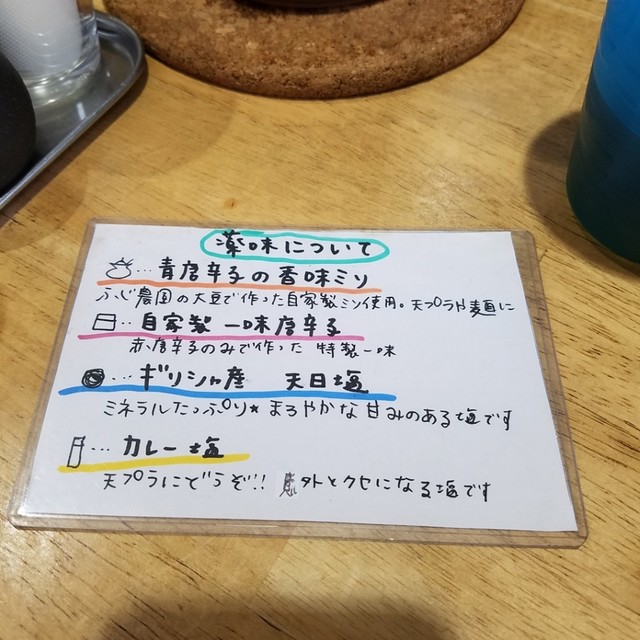 薬味について
…青唐辛子の香味ミソ
ふじ農園の大豆で作った自家製ミソ使用。天プラや麺に
…自家製 一味唐辛子
赤唐辛子のみで作った 特製一味
…ギリシャ産 天日塩
ミネラルたっぷり★まろやかな甘みのある塩です
…カレー塩
天プラにどうぞ!! 意外とクセになる塩です